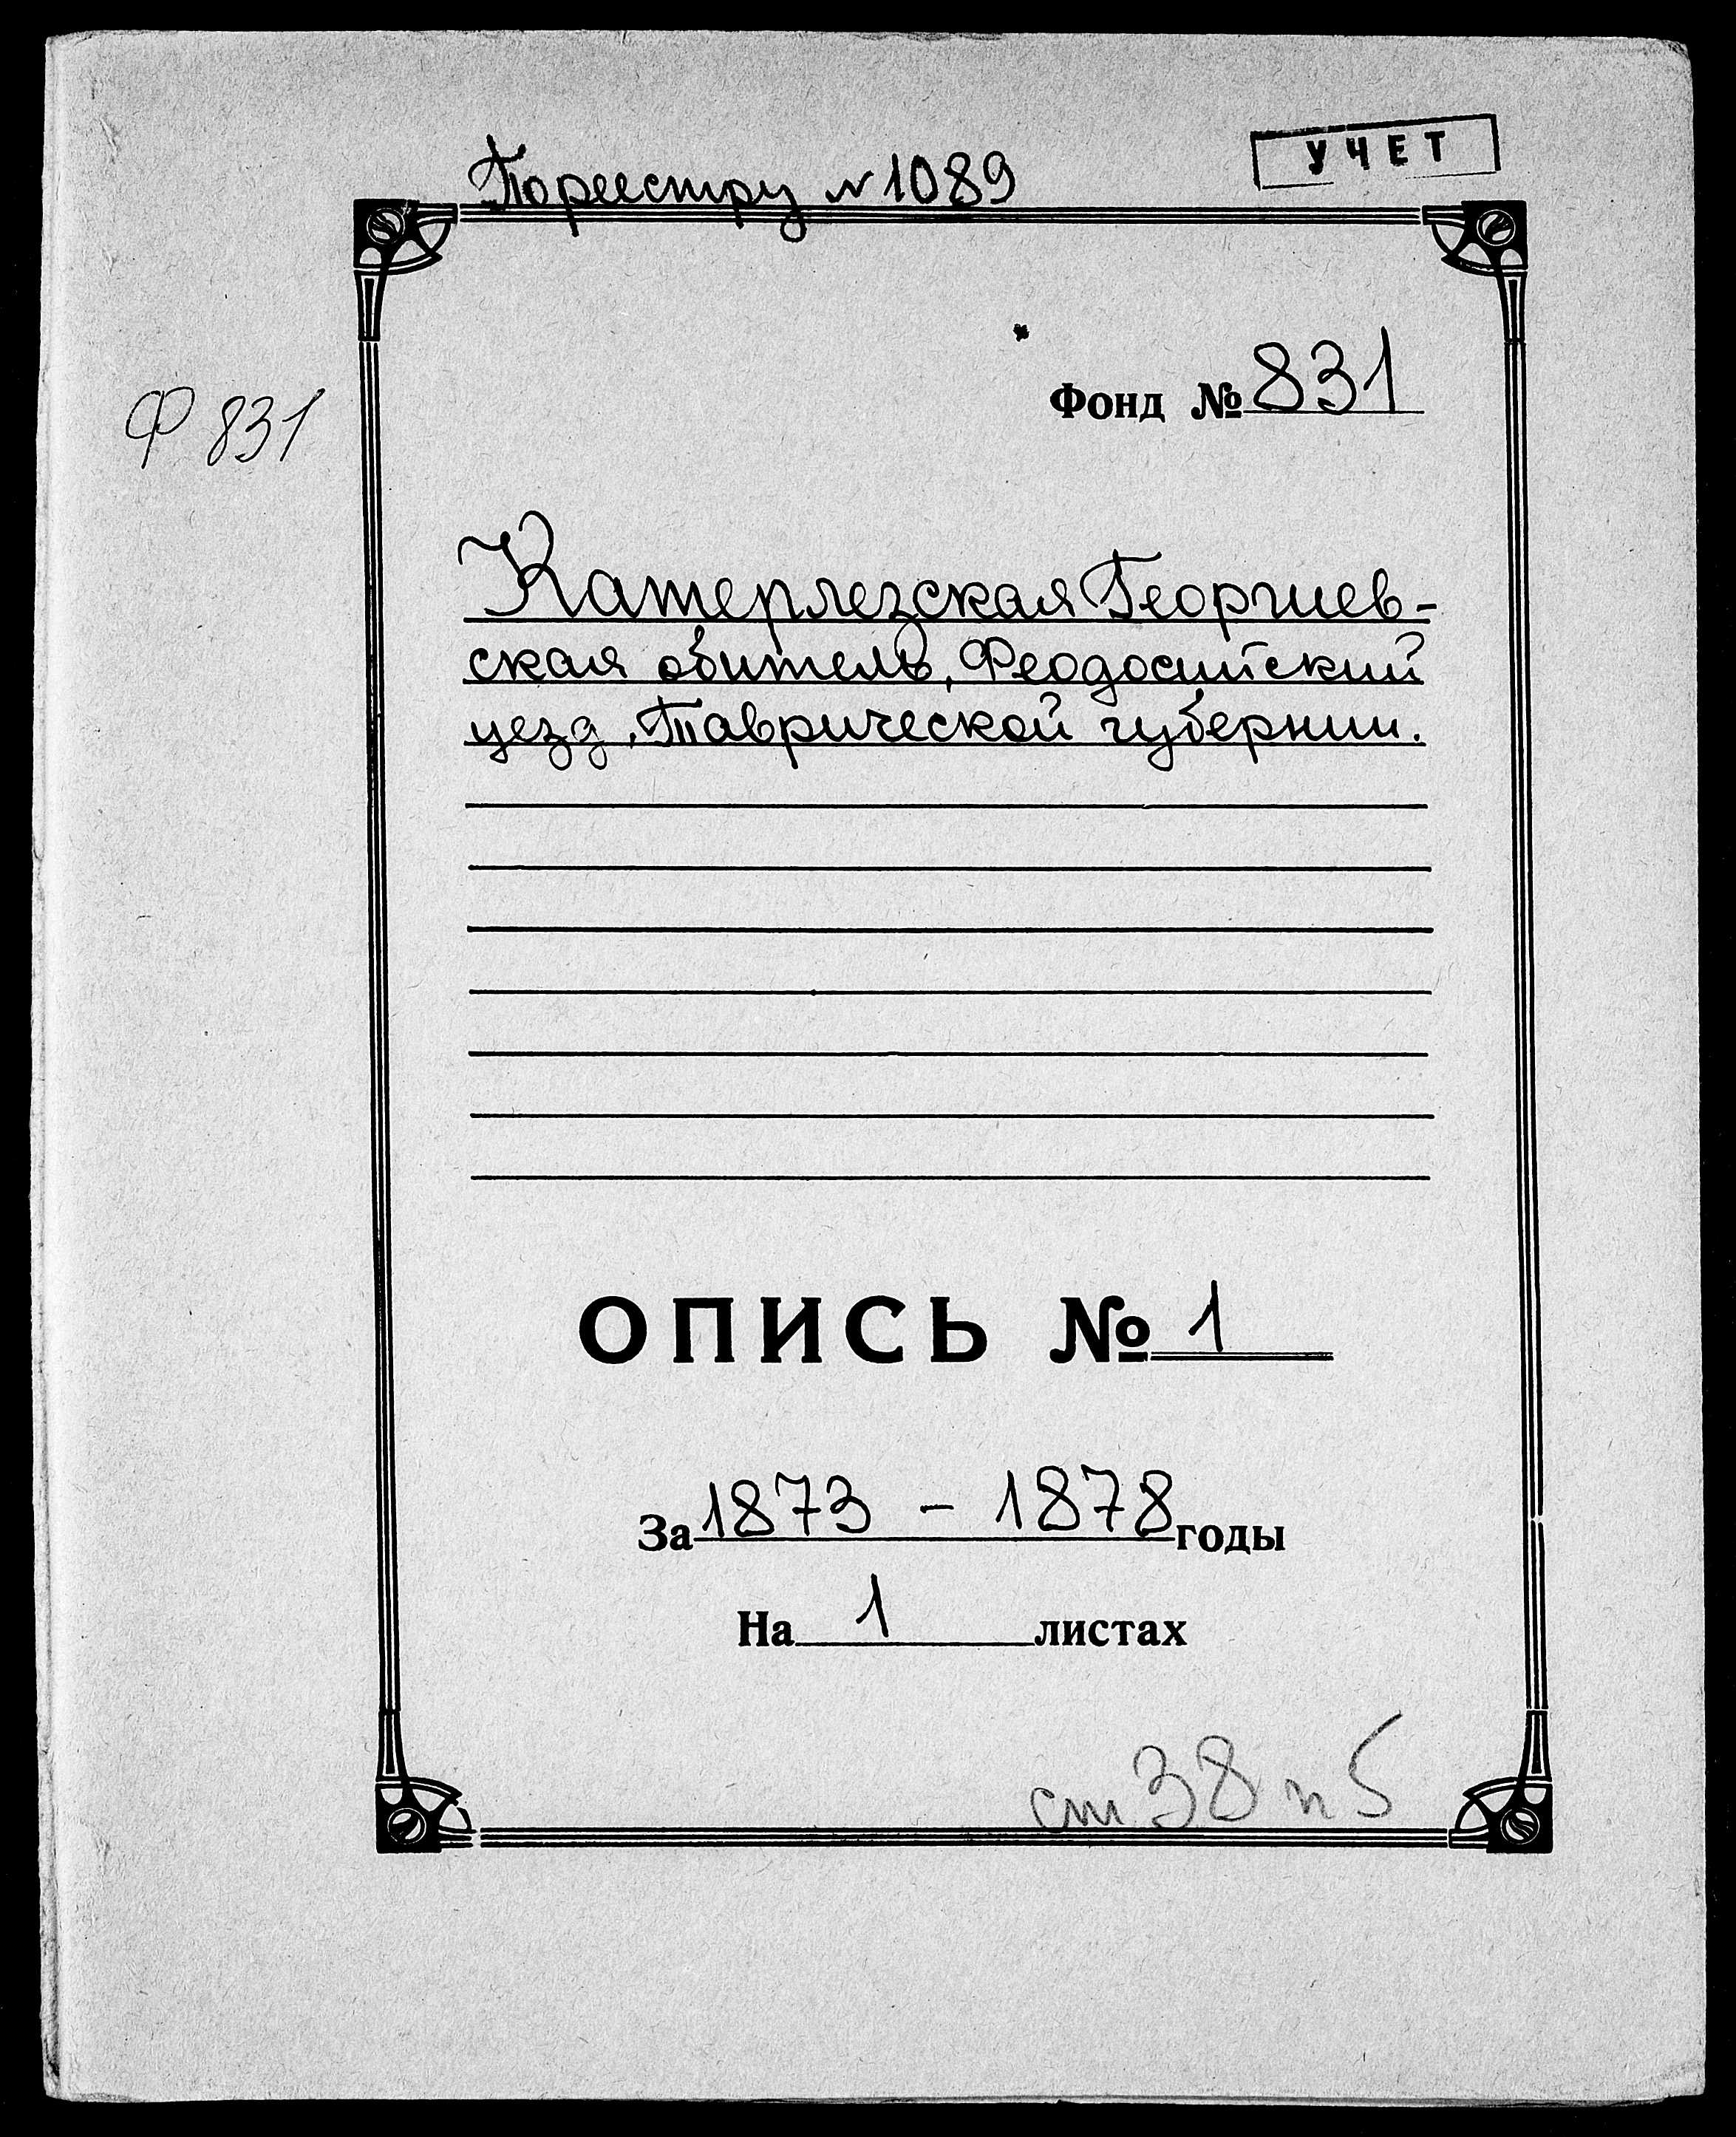 УЧЕТ
По реестру № 1089
Фонд № 831
Ф 831
Катерлезская Георгиев-
ская обитель, Феодосийский
уезд, Таврической губернии.
ОПИСЬ № 1
За 1873 - 1878 годы
На 1 листах
ст 38 п 5